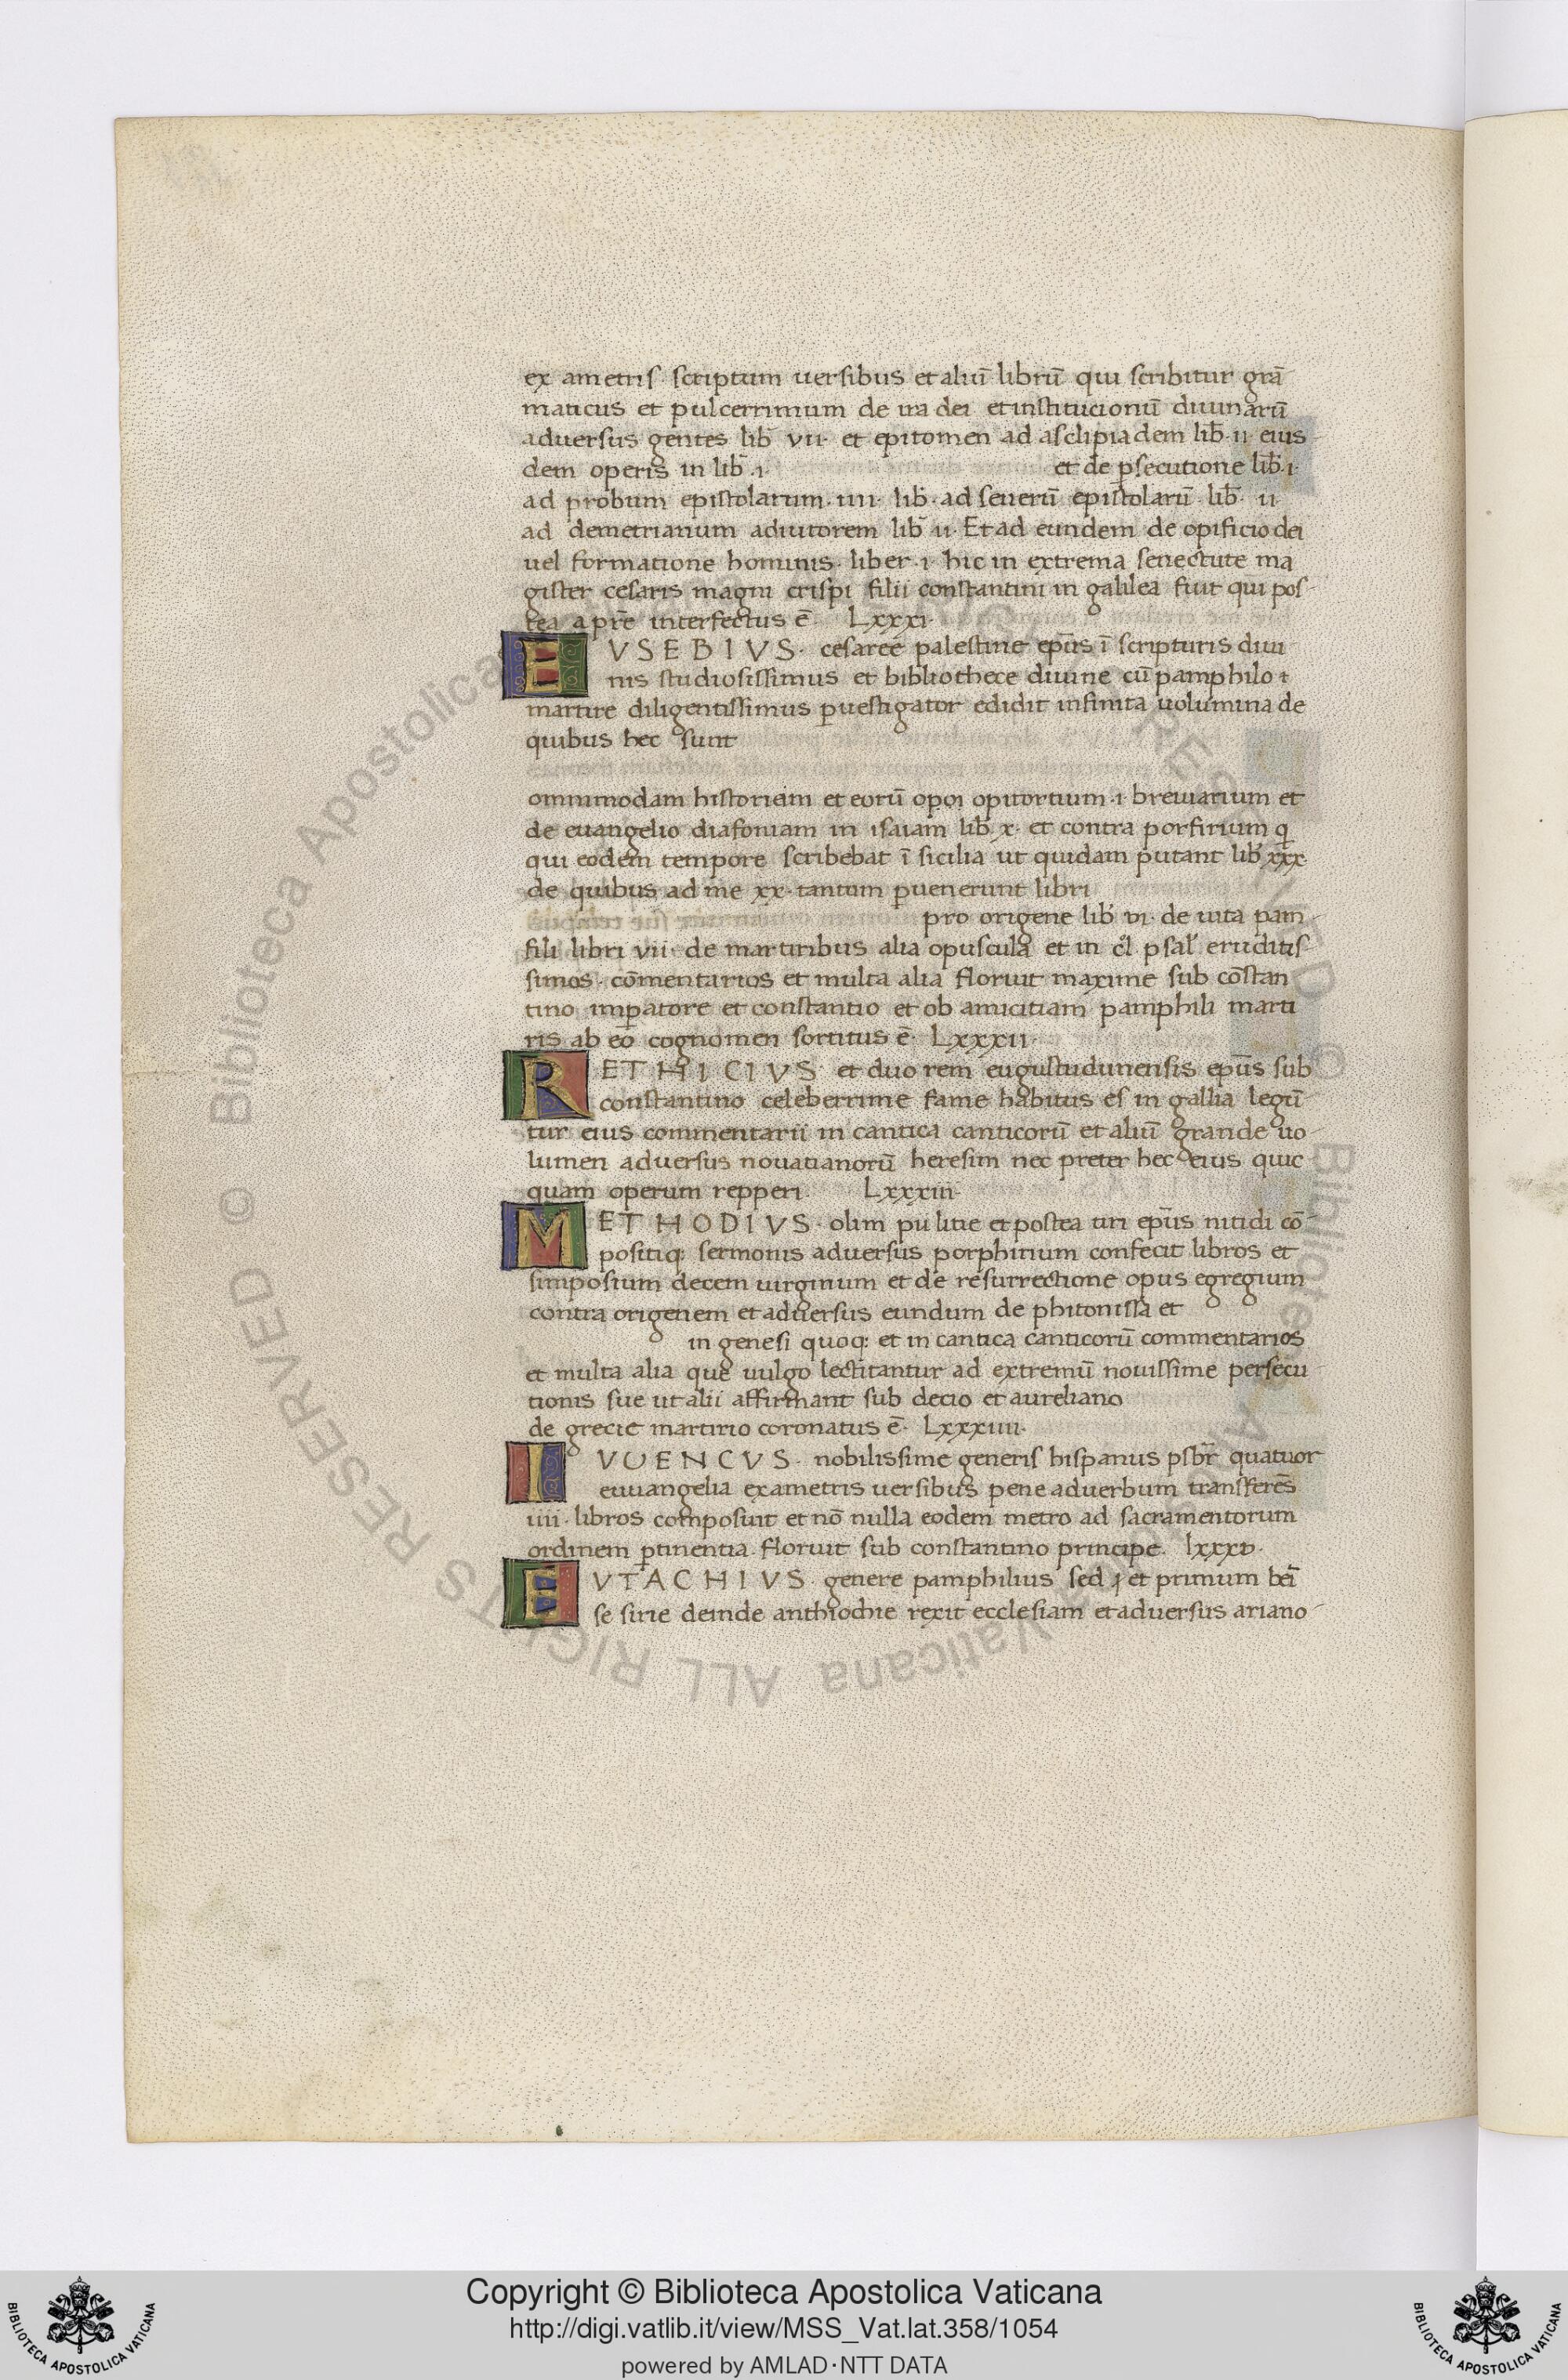 ex ametris scriptum uersibus et aliū librū qui scribitur grā
maticus et pulcerrimum de ira dei et institucionū diuinarū
aduersus gentes lib̄ vii· et epitomen ad asclipiadem lib̄·ii· eius
dem operis in lib̄·i· et de ꝑsecutione lib̄·i·
ad probum epistolarum·iiii· lib̄· ad seuerū epistolarū lib̄· ii
ad demetrianum adiutorem lib̄ ii· Et ad eundem de opificio dei
uel formatione hominis· liber·i· hic in extrema senectute ma
gister cesaris magni crispi filii constantini in galilea fuit qui pos-
tea a pr̄e interfectus ē· Lxxxi·
EVSEBIVS· cesaree palestine ep̄us ī scripturis diui
nis studiosissimus et bibliothece diuine cū pamphilo
martire diligentissimus ꝑuestigator edidit infinita uolumina de
quibus hec sunt
omnimodam historiam et eorū opoi opitortium·i· breuiarium et
de euangelio diafoniam in isaiam lib̄·x· et contra porfirium q̄
qui eodem tempore scribebat ī sicilia ut quidam putant lib̄ xxx·
de quibus ad me xx·tantum ꝑuenerunt libri
pro origene lib̄ vi· de uita pam-
fili libri vii· de martiribus alia opuscula et in cl psal eruditis-
simos· cōmentarios et multa alia floruit maxime sub cōstan
tino imꝑatore et constantio et ob amicitiam pamphili marti
ris ab eo cognomen sortitus ē· Lxxxii·
RETHICIVS et duo rem eugustudunensis ep̄us sub
constantino celeberrime fame habitus es in gallia legū-
tur eius commentarii in cantica canticorū et aliū grande uo-
lumen aduersus nouatianorū heresim nec preter hec eius quic
quam operum repperi· Lxxxiii·
METHODIVS· olim pu litie et postea tiri ep̄us nitidi cō-
positiq; sermonis aduersus porphirium confecit libros et
simposium decem uirginum et de resurrectione opus egregium
contra origenem et aduersus eundum de phitonissa et
in genesi quoq; et in cantica canticorū commentarios
et multa alia que uulgo lectitantur ad extremū nouissime persecu-
tionis siue ut alii affirmant sub decio et aureliano
de grecie martirio coronatus ē· Lxxxiiii·
IVUENCVS· nobilissime generis hispanus psbr̄ quatuor
euuangelia exametris uersibus pene aduerbum transferēs
iiii·libros composuit et nō nulla eodem metro ad sacramentorum
ordinem ꝑtinentia floruit sub constantino principe· lxxxv·
EVTACHIVS· genere pamphilius sed et primum bei
se sirie deinde anthiochie rexit ecclesiam et aduersus ariano-
© Biblioteca Apostolica Vaticana ALL RIGHTS RESERVED
Copyright © Biblioteca Apostolica Vaticana
http://digi.vatlib.it/view/MSS_Vat.lat.358/1054
powered by AMLAD·NTT DATA
BIBLIOTECA APOSTOLICA VATICANA
BIBLIOTECA APOSTOLICA VATICANA